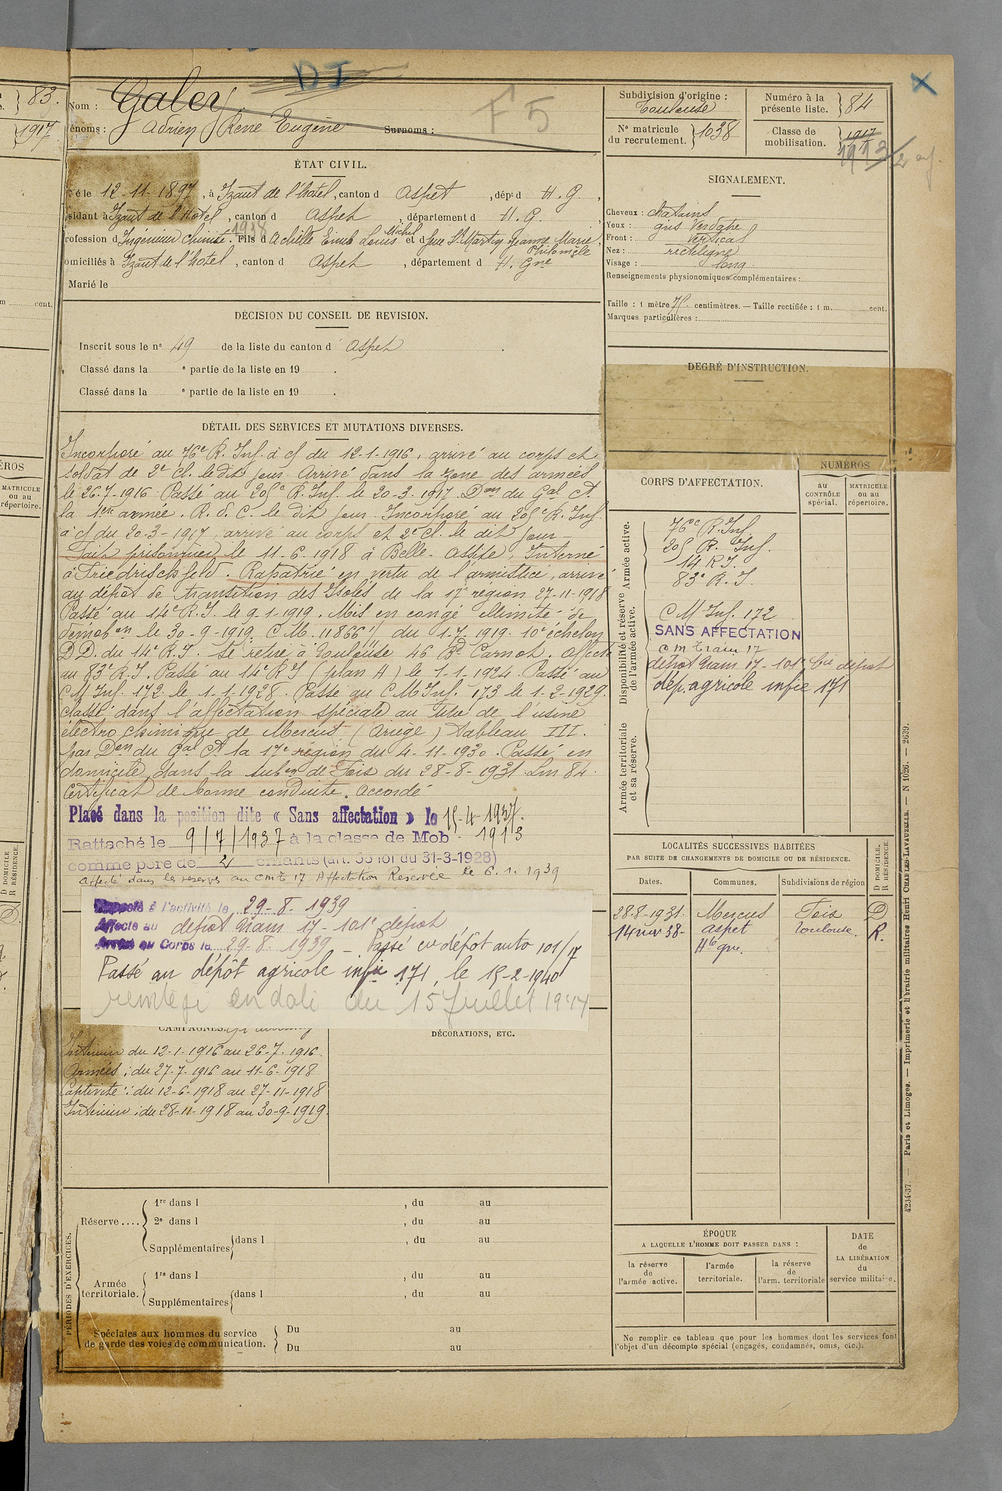 83.
1917
DI
F5
Nom : Galey
Prénoms : Adrien René Eugène Surnoms :
ÉTAT CIVIL.
Né le 12-11-1897, à Izaut de l'hôtel, canton d Aspet, dép^t d H. G.
résidant à Izaut de l'hôtel, canton d Aspet, département d H. G.
1938 Michel
profession d Ingénieur chimiste. Fils d Achille Emile Louis et d feue St Martin Jeanne Marie
Philomène
domiciliés à Izaut de l'hotel, canton d Aspet, département d H. Gne
Marié le
DÉCISION DU CONSEIL DE REVISION.
Inscrit sous le n° 49 de la liste du canton d Aspet
Classé dans la e partie de la liste en 19 .
Classé dans la e partie de la liste en 19 .
DÉTAIL DES SERVICES ET MUTATIONS DIVERSES.
Incorporé au 76e R. Inf. à c/ du 12-1-1916, arrivé au corps et
soldat de 2e Cl. le dit jour. Arrivé dans la zone des armées
le 26-7-1916. Passé au 205e R. Inf. le 20-3-1917. Don du Gal Ct
la 1ere armée. R. d. C. le dit jour. Incorporé au 205e R. Inf.
à c/ du 20-3-1917, arrivé au corps et 2e Cl. le dit jour
Fait prisonnier le 11-6-1918 à Belle-Assise, Interné
à Friedrischfeld. Rapatrié en vertu de l'armistice, arrivé
au dépôt de transition des Isolés de la 17e region 27-11-1918
Passé au 14e R.I. le 9.1.1919. Mis en congé illimité de
démobon le 30-9-1919 C.M. 11866 du 1.7.1919. 10e échelon
D.D. du 14e R.I. Se retire à Toulouse 46 Bd Carnot. Affecté
au 83e R.I. Passé au 14e R.I (plan A) le 1-1-1924. Passé au
C M Inf. 172 le 1-1-1928. Passé au C M Inf. 173 le 1-2-1929.
Classé dans l'affectation spéciale au titre de l'usine
électro chimique de Mercus (Ariege) Tableau III.
par Don du Gal Ct la 17e region du 4-11-1930. Passé en
domicile dans la subon de Foix du 28-8-1931. Lm 84.
Certificat de bonne conduite. Accordé
Placé dans la position dite « Sans affectation » le 15-4-1937.
Rattaché le 9/7/1937 à la classe de Mob 1913
comme père de 2 enfants (art. 58 loi du 31-3-1928)
Affecté dans les réserves au cmtr 17 Affectation Reservée le 6.1.1939
Rappelé à l'activité le 29-8-1939
Affecté au dépôt train 17-101e dépôt
Arrivé au Corps le 29-8-1939 - Passé au dépôt auto 101/17
Passé au dépôt agricole infie 171, le 15-2-1940
du 15 Juillet 19
CAMPAGNES.
Intérieur du 12-1-1916 au 26-7-1916.
Armées : du 27-7-1916 au 11-6-1918
Captivité : du 12-6-1918 au 27-11-1918
Intérieur : du 28-11-1918 au 30-9-1919.
DÉCORATIONS, ETC.
PÉRIODES D'EXERCICES.
Réserve....
1re dans l , du au
2e dans l , du au
Supplémentaires dans l , du au
Armée territoriale.
1re dans l , du au
Supplémentaires dans l , du au
Spéciales aux hommes du service de garde des voies de communication.
Du au
Du au
Subdivision d'origine : Toulouse
Numéro à la présente liste. 84
N° matricule du recrutement. 1038
Classe de mobilisation. 1917
1913/2
SIGNALEMENT.
Cheveux : chatains
Yeux : gris verdatre
Front : vertical
Nez : rectiligne
Visage : long
Renseignements physionomiques complémentaires :
Taille : 1 mètre 75 centimètres. — Taille rectifiée : 1 m. cent.
Marques particulières :
DEGRÉ D'INSTRUCTION.
CORPS D'AFFECTATION.
NUMÉROS
au CONTRÔLE spécial.
MATRICULE ou au répertoire.
Armée active.
76e R. Inf
205 R. Inf.
14 R I.
83e R. I
Disponibilité et réserve de l'armée active.
C M Inf. 172
SANS AFFECTATION
c m train 17
dépôt train 17-101e dépôt
dép. agricole infie 171
Armée territoriale et sa réserve.
LOCALITÉS SUCCESSIVES HABITÉES
PAR SUITE DE CHANGEMENTS DE DOMICILE OU DE RÉSIDENCE.
Dates. Communes. Subdivisions de région
D DOMICILE. R RÉSIDENCE.
28-8-1931 Mercus Foix D
14 38- Aspet Toulouse. R.
Hte gne.
ÉPOQUE
A LAQUELLE L'HOMME DOIT PASSER DANS :
la réserve de l'armée active.
l'armée territoriale.
la réserve de l'arm. territoriale
DATE de LA LIBÉRATION du service militaire.
Ne remplir ce tableau que pour les hommes dont les services font
l'objet d'un décompte spécial (engagés, condamnés, omis, etc.).
4234-37. — Paris et Limoges. — Imprimerie et librairie militaires Henri CHARLES-LAVAUZELLE. — N 1026. — 2639.